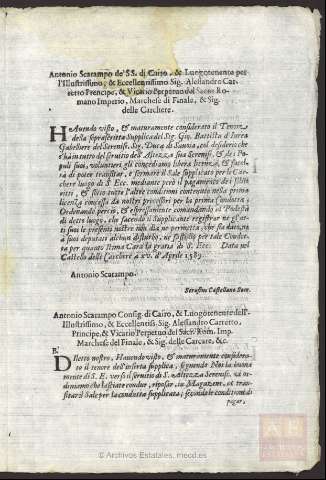 Antonio Scarampo de' SS. di Cairo, & Luogotenente per
l'Illustrissimo, & Eccellentissimo Sig. Alessandro Car-
retto Prencipe, & Vicario Perpetuo del Sacro Ro-
mano Imperio, Marchese di Finale, & Sig.
delle Carchere.
HAuendo visto, & maturamente considerato il Tenore
della soprascritta Supplica del Sig. Gio. Battista d
Gabelliere del Sereniss. Sig. Duca di Sauoia, col desiderio che
s'hà in tutto del seruitio dell'Altezza sua Sereniss. & de i Po-
poli suoi, volontieri gli concediamo libera licenza, & facol-
tà di poter transitar, e fermare il Sale supplicato per le Car-
chere luogo di S. Ecc. mediante però il pagamento de i soliti
dritti, & sotto tutte l'altre condicioni contenute nella prima
licenza concessa da nostri precessori per la prima condutta,
Ordinando perciò, & espressamente comandando al Podestà
di detto luogo, che facendo il Supplicante registrar ne gl'at-
ti suoi le presenti nostre non dia, ne permetta, che sia datto
à suoi deputati alcun disturbo, ne fastidio per tale Condut-
ta per quanto stima Cara la gratia di S. Ecc. Data nel
Castello delle Carchere à xv. d'Aprile 1589.
Antonio Scarampo.
Serafino Castellano Secr.
Antonio Scarampo Consig. di Cairo, & Luogotenente dell'
Illustrissimo, & Eccellentiss. Sig. Alessandro Carretto,
Principe, & Vicario Perpetuo del Sacr. Rom. Imp.
Marchese del Finale, & Sig. delle Carcare, &c.
DIletto nostro, Hauendo visto, & maturamente considera-
to il tenore dell'inserta supplica, seguendo Noi la
mente di S. E. verso il seruitio di S. Altezza Sereniss. vi or-
diniamo che lasciate condur, riposar, in Magazeni, et tran-
sitar il Sale per la condutta supplicata, secondo le conditioni di
pagar,
© Archivos Estatales, mecd.es